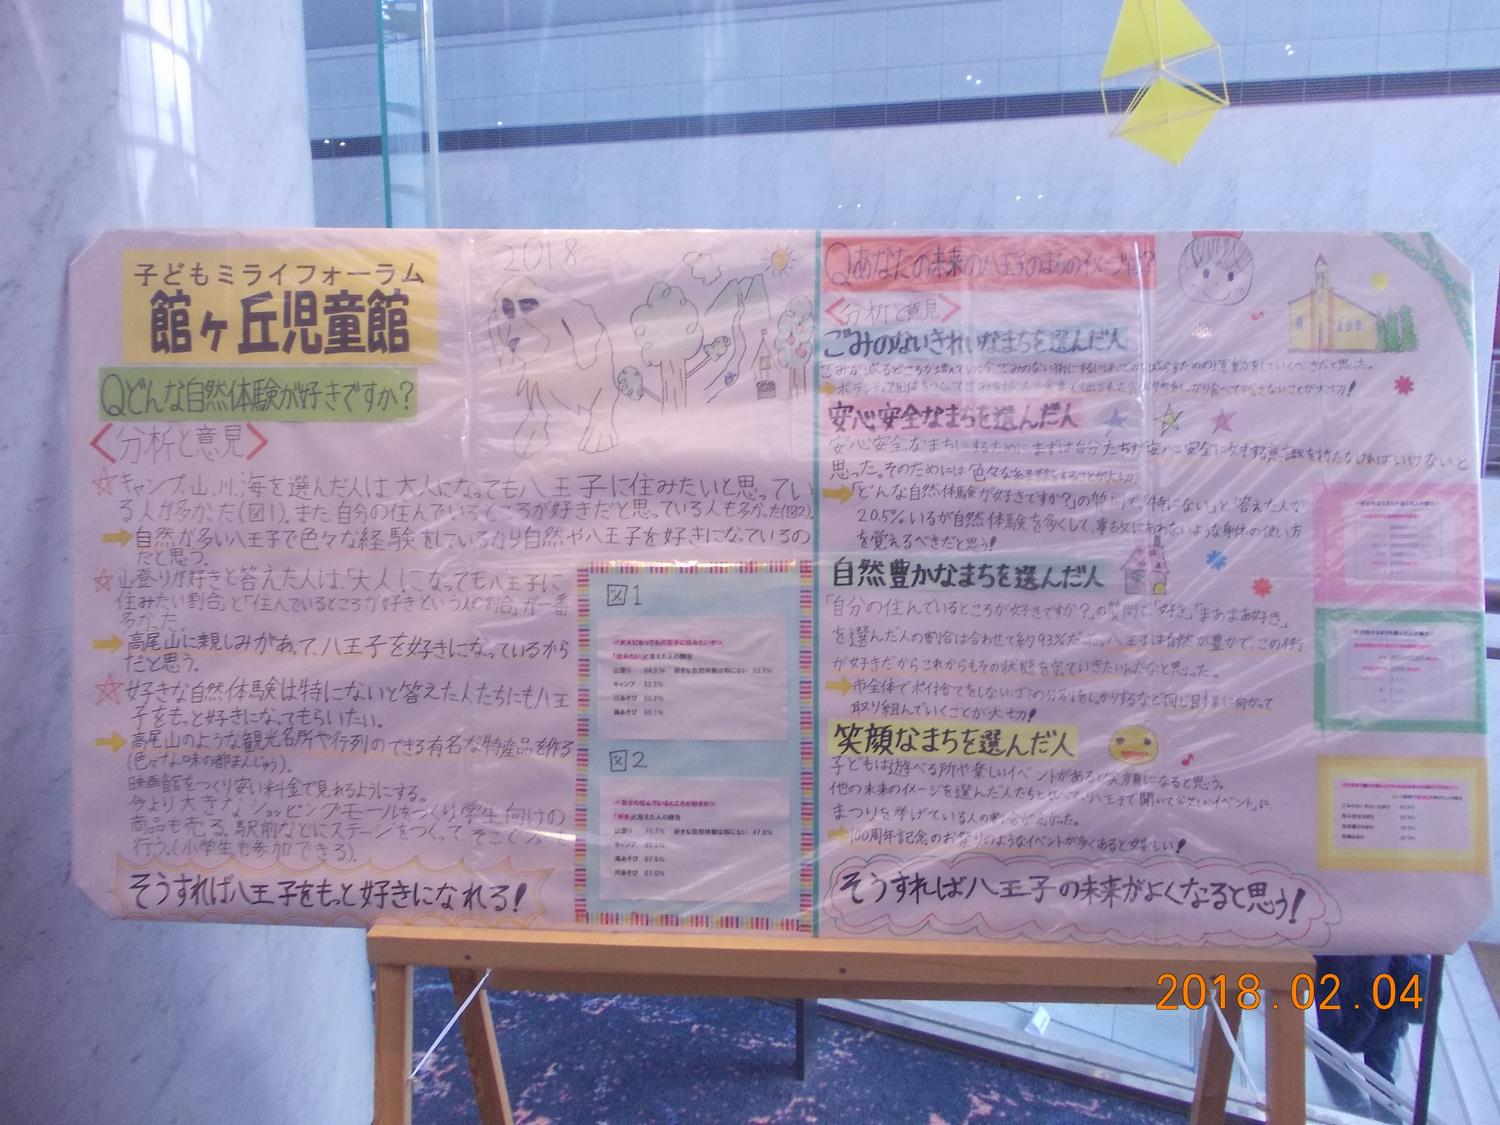 子どもミライフォーラム
館ヶ丘児童館
2018
Qどんな自然体験が好きですか?
<分析と意見>
☆キャンプ、山、川、海を選んだ人は、大人になっても八王子に住みたいと思ってい
る人が多かった(図1)。また、自分の住んでいるところが好きだと思っている人も多かった(図2)
➡自然が多い八王子で色々な経験をしているから自然や八王子を好きになっているの
だと思う。
☆山登りが好きと答えた人は、「大人になっても八王子に
住みたい割合」と「住んでいるところが好きという人の割合」が一番
多かった。
➡高尾山に親しみがあって、八王子を好きになっているから
だと思う。
☆好きな自然体験は特にないと答えた人たちにも八王
子をもっと好きになってもらいたい。
➡高尾山のような観光名所や行列のできる有名な特産品を作る
(色々な味の都まんじゅう)。
映画館をつくり安い料金で見れるようにする。
今より大きなショッピングモールをつくり学生向けの
商品も売る。駅前などにステージをつくって、そこでショーを
行う。(小学生も参加できる)。
そうすれば八王子をもっと好きになれる!
図1
<大人になっても八王子に住みたいか>
「住みたい」と答えた人の割合
山登り 54.5% 好きな自然体験は特にない 33.7%
キャンプ 52.2%
川あそび 50.2%
海あそび 50.1%
図2
<自分の住んでいるところが好きか>
「好き」と答えた人の割合
山登り 70.7% 好きな自然体験は特にない 47.8%
キャンプ
海あそび 67.6%
川あそび 67.0%
Qあなたの未来の八王子のまちのイメージは?
<分析と意見>
ごみのないきれいなまちを選んだ人
安心安全なまちを選んだ人
安心安全なまちにするためにまずは自分たちが安心安全に対する意識を持たなければいけないと
思った。そのためには色々な経験をすることが大切
➡「どんな自然体験が好きですか?」の質問で「特にない」と答えた人が
20.5%いるが自然体験を多くして、事故にあわないような身体の使い方
を覚えるべきだと思う!
自然豊かなまちを選んだ人
「自分の住んでいるところが好きですか?」の質問で「好き」「まあまあ好き」
を選んだ人の割合は合わせて約93%だった。八王子は自然が豊かで、この街
が好きだからこれからもその状態を守っていきたいんだなと思った。
➡市全体でポイ捨てをしない、ゴミの分別をしっかりするなど同じ目標に向かって
取り組んでいくことが大切!
笑顔なまちを選んだ人
子どもは遊べる所や楽しいイベントがあると笑顔になると思う。
他の未来のイメージを選んだ人たちと比べて、「八王子で開いてほしいイベント」に、
まつりを挙げている人の割合が高かった。
➡100周年記念のお祭りのようなイベントが多くあると嬉しい!
そうすれば八王子の未来がよくなると思う!
2018.02.04